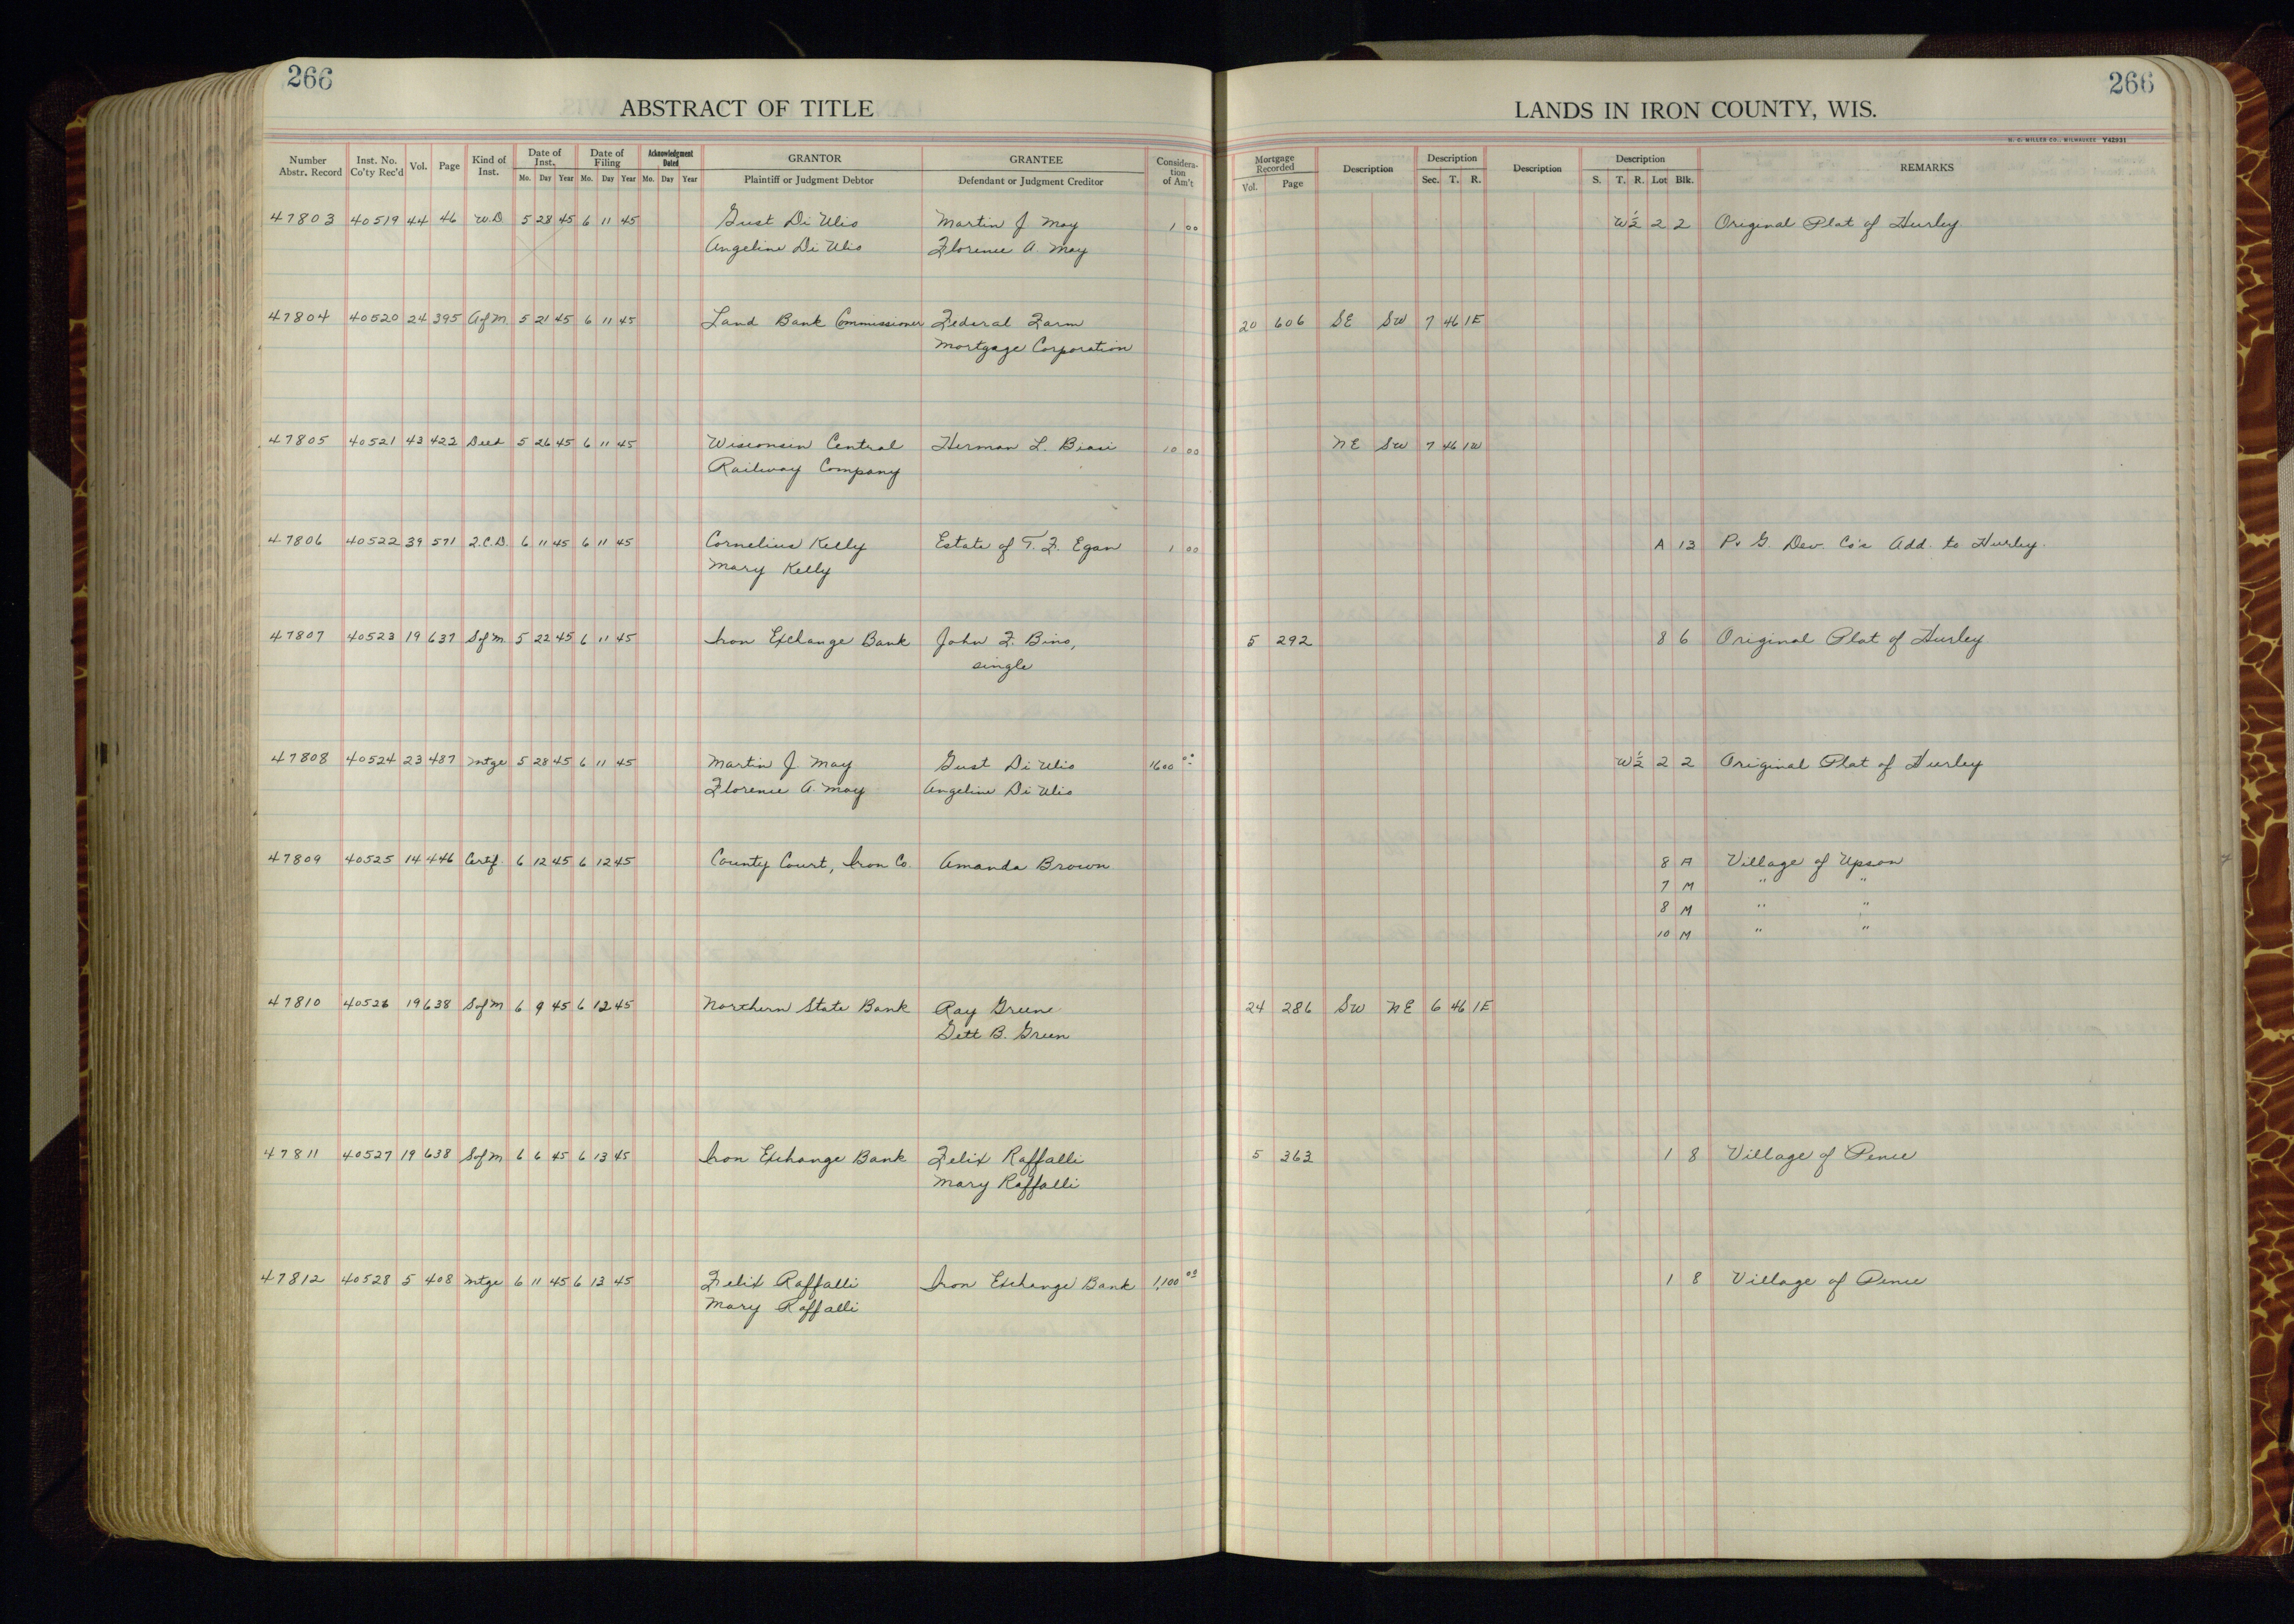 266
266
ABSTRACT OF TITLE
LANDS IN IRON COUNTY, WIS.
H. C. MILLER CO., MILWAUKEE Y42931
Number Abstr. Record | Inst. No. Co'ty Rec'd | Vol. | Page | Kind of Inst. | Date of Inst. Mo. Day Year | Date of Filing Mo. Day Year | Acknowledgment Dated Mo. Day Year | GRANTOR Plaintiff or Judgment Debtor | GRANTEE Defendant or Judgment Creditor | Considera-tion of Am't | Mortgage Recorded Vol. Page | Description | Description Sec. T. R. | Description | Description S. T. R. Lot Blk. | REMARKS
47803 40519 44 46 W.D. 5 28 45 6 11 45 Gust Di Ulio Martin J May 1 00 W½ 2 2 Original Plat of Hurley
Angeline Di Ulio Florence A. May
47804 40520 24 395 A of M. 5 21 45 6 11 45 Land Bank Commissioner Federal Farm 20 606 SE SW 7 46 1E
Mortgage Corporation
47805 40521 43 422 Deed 5 26 45 6 11 45 Wisconsin Central Herman L. Biasi 10 00 NE SW 7 46 1W
Railway Company
47806 40522 39 571 2.C.D. 6 11 45 6 11 45 Cornelius Kelly Estate of T. F. Egan 1 00 A 13 P. G. Dev. Co's Add. to Hurley.
Mary Kelly
47807 40523 19 637 S of M 5 22 45 6 11 45 Iron Exchange Bank John F. Bino, 5 292 8 6 Original Plat of Hurley
single
47808 40524 23 487 Mtge 5 28 45 6 11 45 Martin J. May Gust Di Ulio 1600 00 W½ 2 2 Original Plat of Hurley
Florence A. May Angeline Di Ulio
47809 40525 14 446 Certif. 6 12 45 6 12 45 County Court, Iron Co. Amanda Brown 8 A Village of Upson
7 M " "
8 M " "
10 M " "
47810 40526 19 638 S of M 6 9 45 6 12 45 Northern State Bank Ray Greene 24 286 SW NE 6 46 1E
Gett B. Green
47811 40527 19 638 S of M 6 6 45 6 13 45 Iron Exchange Bank Felix Raffalli 5 363 1 8 Village of Pence
Mary Raffalli
47812 40528 5 408 Mtge 6 11 45 6 13 45 Felix Raffalli Iron Exchange Bank 1,100 00 1 8 Village of Pence
Mary Raffalli